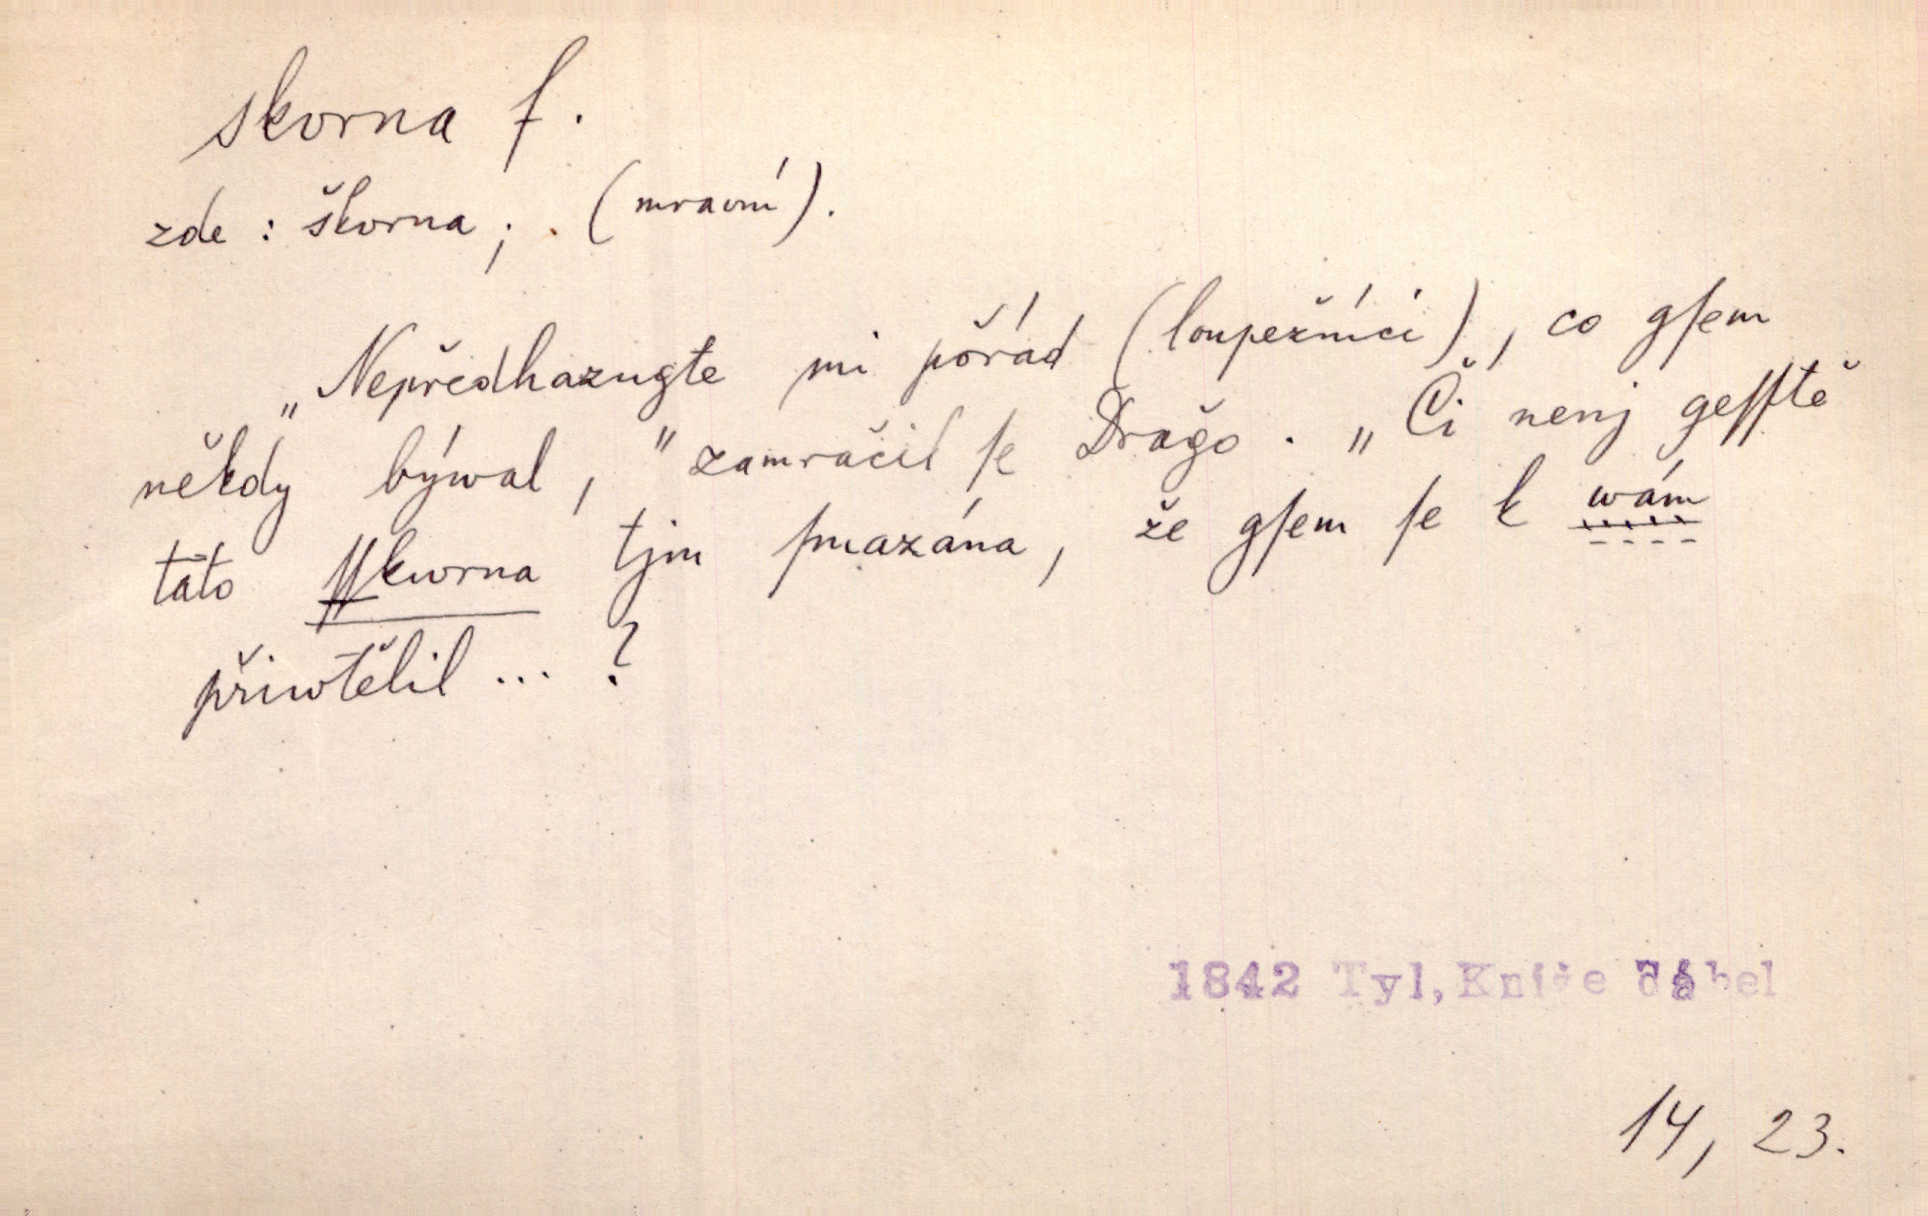 skorna f.
zde : škorna ; . (mravní).
„Nepředhazugte mi pořád (loupežníci), co gſem
někdy býwal," zamračil ſe Drago. „Či nenj geſſtě
tato ſſkwrna tjm ſmazána, že gſem ſe k wám
přiwtělil ... ?
1842 Tyl, Kníže ďábel
14, 23.